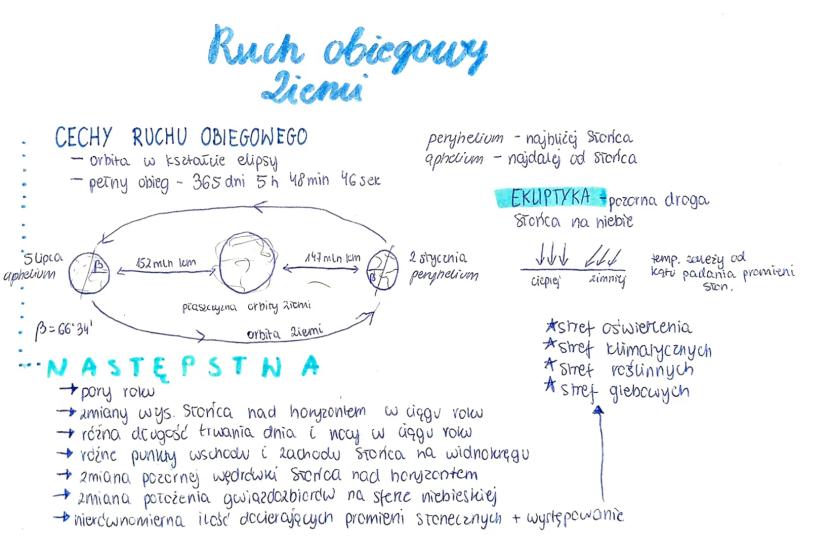 Ruch obiegowy
Ziemi
CECHY RUCHU OBIEGOWEGO
- orbita w kształcie elipsy
- pełny obieg - 365 dni 5 h 48 min 46 sek
peryhelium - najbliżej Słońca
aphelium - najdalej od Słońca
EKLIPTYKA - pozorna droga
Słońca na niebie
5 lipca
aphelium
β
152 mln km
147 mln km
β
2 stycznia
peryhelium
płaszczyzna orbity Ziemi
orbita Ziemi
β = 66°34'
cieplej
zimniej
temp. zależy od
kątu padania promieni
słon.
NASTĘPSTWA
→ pory roku
→ zmiany wys. Słońca nad horyzontem w ciągu roku
→ różna długość trwania dnia i nocy w ciągu roku
→ różne punkty wschodu i zachodu Słońca na widnokręgu
→ zmiana pozornej wędrówki Słońca nad horyzontem
→ zmiana położenia gwiazdozbiorów na sferze niebieskiej
→ nierównomierna ilość docierających promieni słonecznych + występowanie
★ stref oświetlenia
★ stref klimatycznych
★ stref roślinnych
★ stref glebowych